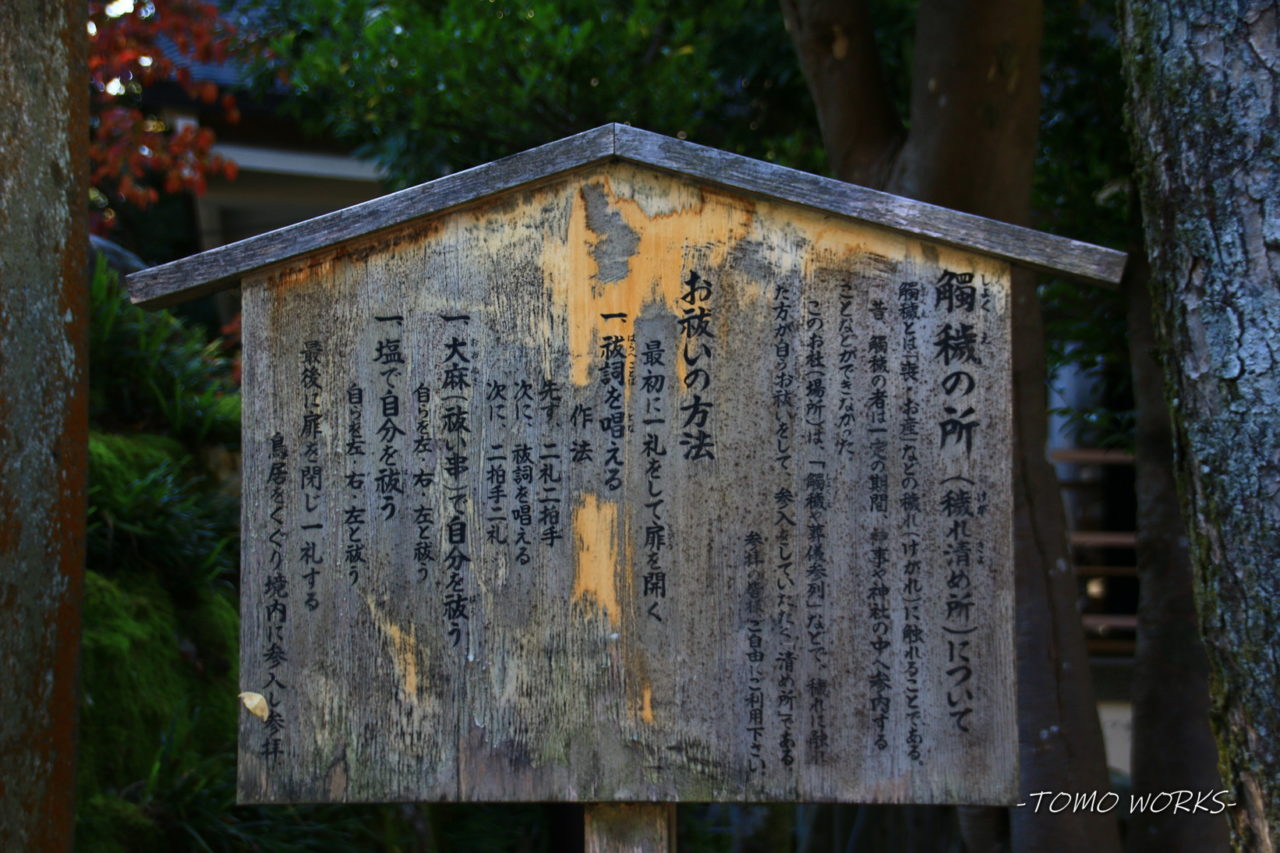 觸穢の所(穢れ清め所)について
觸穢とは「喪・お産」などの穢れ(けがれ)に触れることである。
昔、觸穢の者は一定の期間、神事や神社の中へ参内する
ことなどができなかった。
このお社(場所)は、「觸穢・葬儀参列」などで、穢れに触れ
た方が自らお祓いをして、参入をしていただく「清め所」である
参拝の皆様、ご自由にご利用下さい。
お祓いの方法
最初に一礼をして扉を開く
一、祓詞を唱える
作法
先ず、二礼二拍手
次に、祓詞を唱える
次に、二拍手二礼
一、大麻(祓い串)で自分を祓う
自らを左・右・左と祓う
一、塩で自分を祓う
自らを左・右・左と祓う
最後に扉を閉じ一礼する
鳥居をくぐり境内に参入し参拝
-TOMO WORKS-